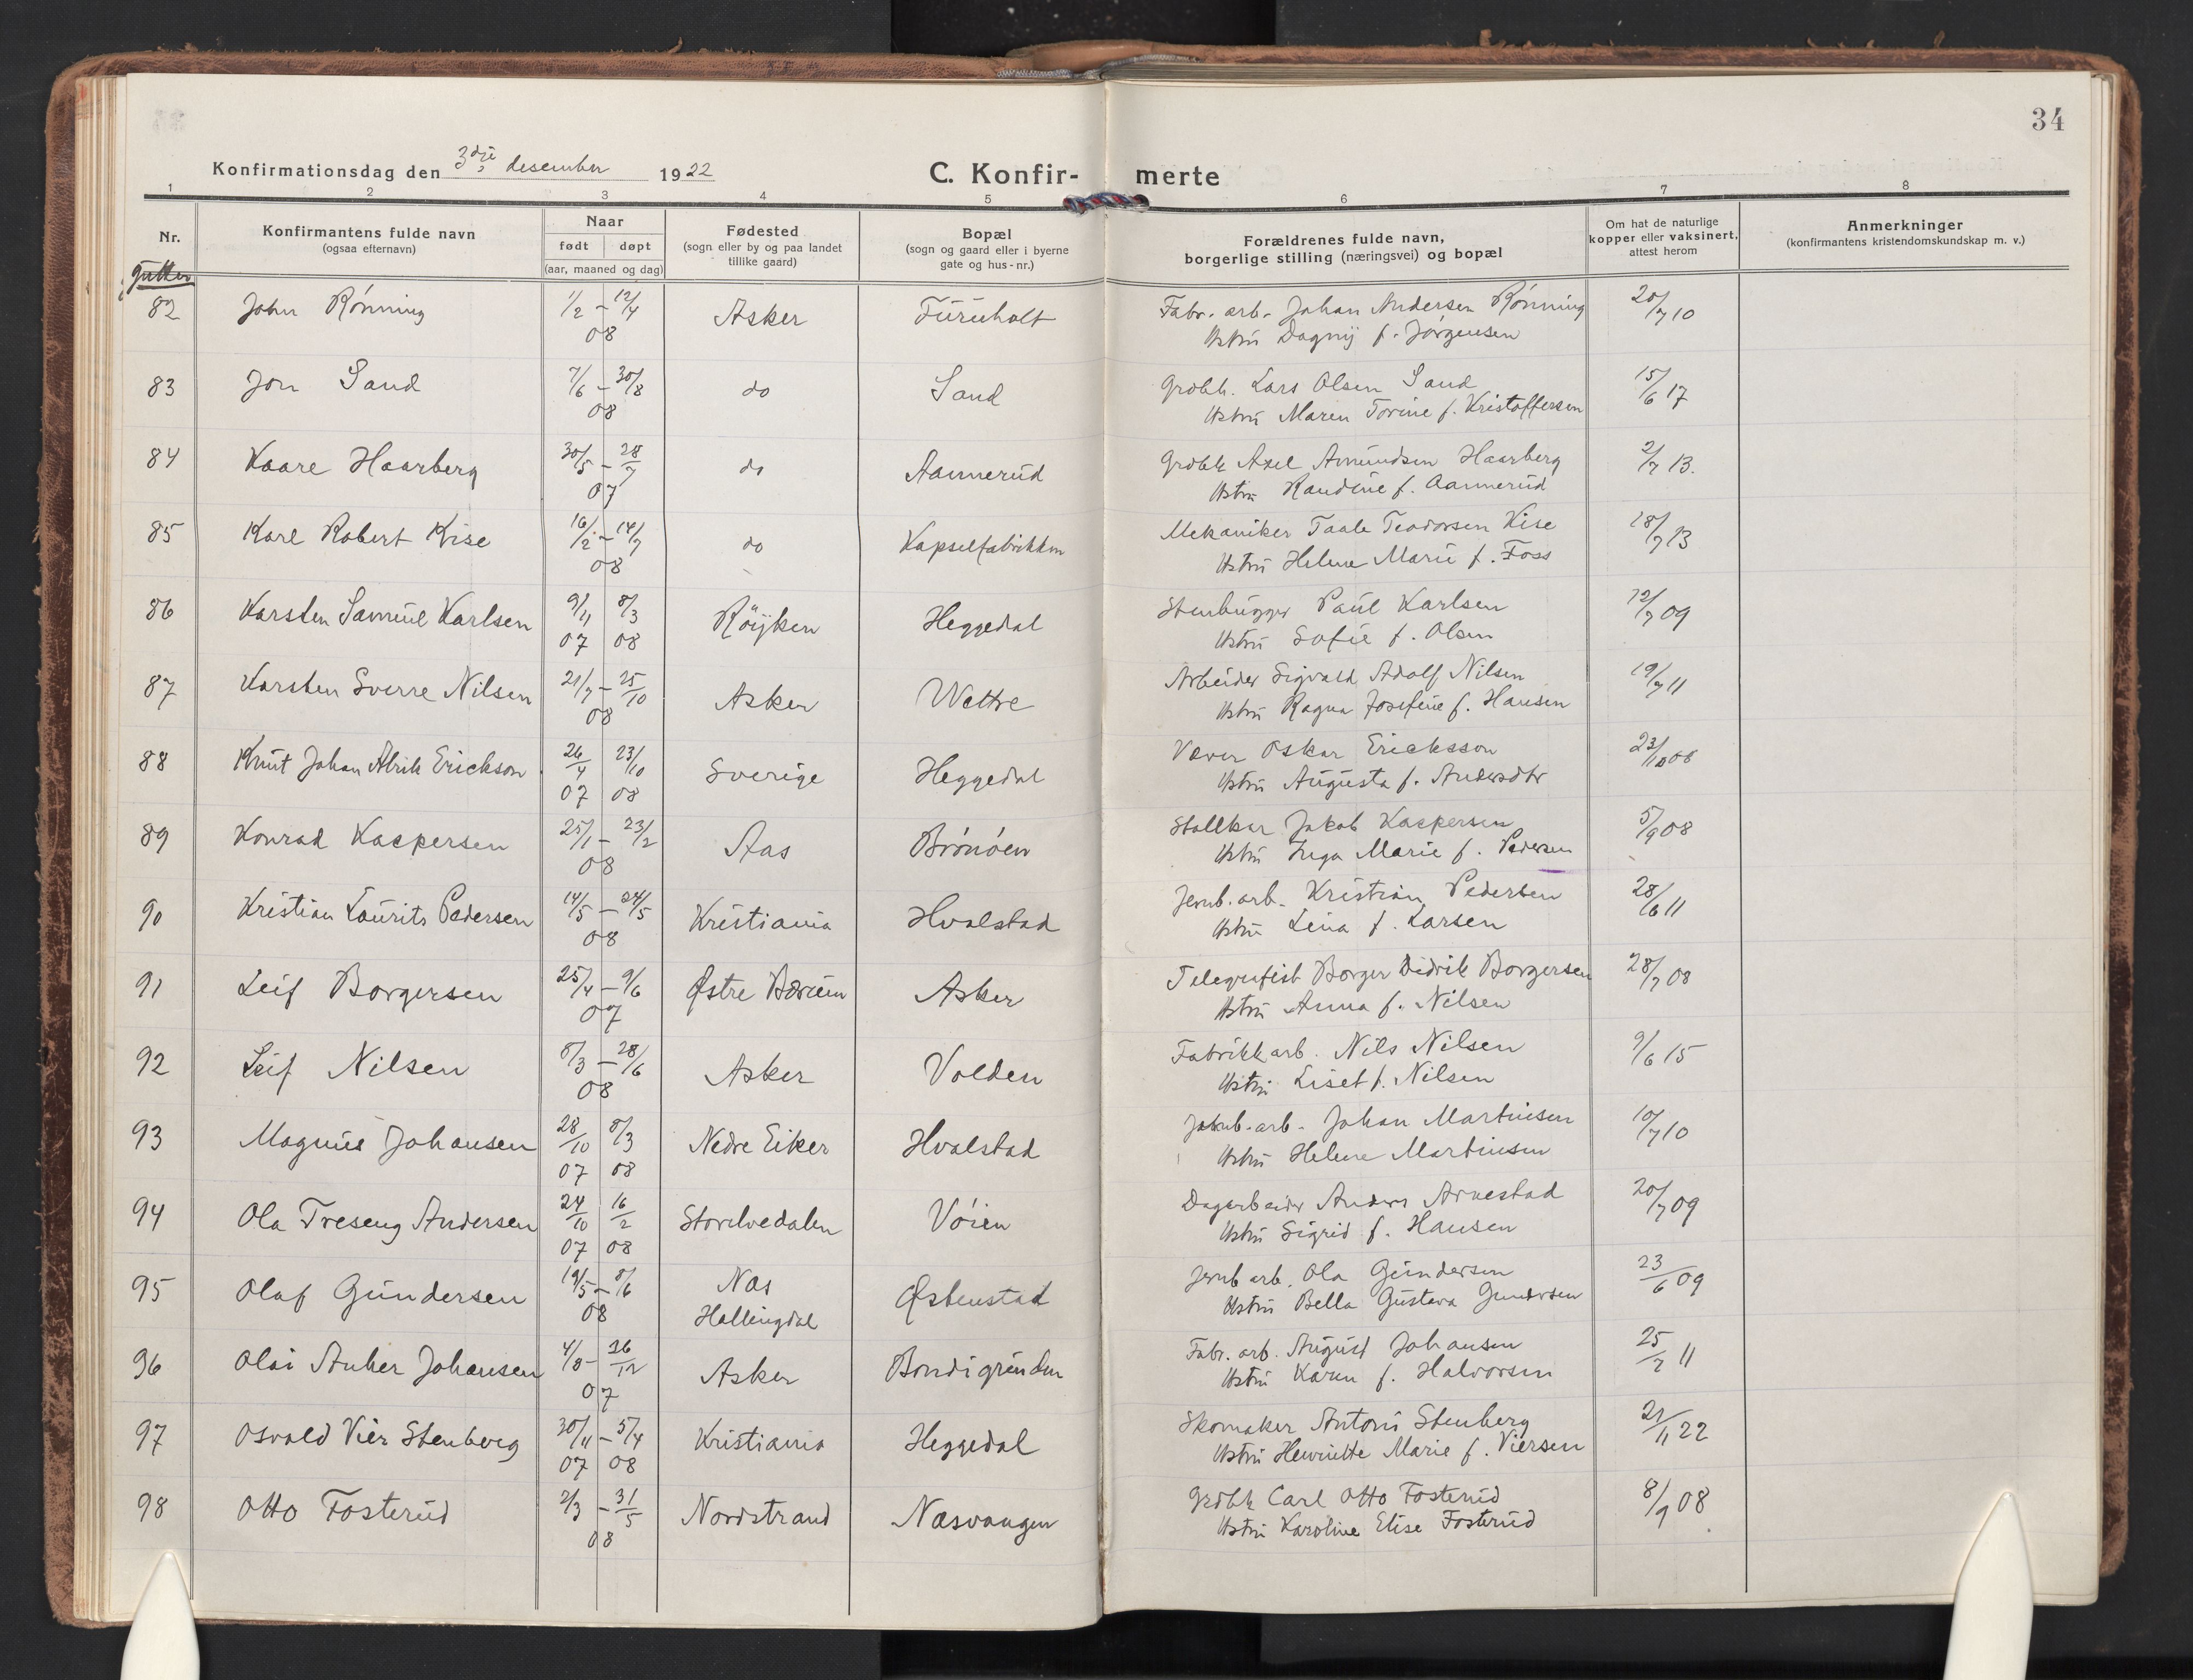 34
Konfirmationsdag den 3dje desember 1922
C. Konfir- merte
1 2 3 4 5 6 7 8
Nr.
Konfirmantens fulde navn
(ogsaa efternavn)
Naar
født døpt
(aar, maaned og dag)
Fødested
(sogn eller by og paa landet
tillike gaard)
Bopæl
(sogn og gaard eller i byerne
gate og hus-nr.)
Forældrenes fulde navn,
borgerlige stilling (næringsvei) og bopæl
Om hat de naturlige
kopper eller vaksinert,
attest herom
Anmerkninger
(konfirmantens kristendomskundskap m. v.)
Gutter
82 John Rønning 1/2 – 12/4 08 Asker Furuholt Fabr. arb. Johan Andersen Rønning 20/7 10
Ustru Dagny f. Jørgensen
83 Jon Sand 7/6 – 30/8 08 do Sand Grdbk. Lars Olsen Sand 15/6 17
Ustru Maren Torine f. Kristoffersen
84 Kaare Haarberg 30/5 – 28/7 07 do Aamerud Grdbk Axel Amundsen Haarberg 2/7 13.
Ustru Randine f. Aamerud
85 Karl Robert Kise 16/2 – 14/7 08 do Kapselfabrikken Mekaniker Taale Teodorsen Kise 18/7 13
Ustru Helene Marie f. Foss
86 Karsten Samuel Karlsen 9/11 07 8/3 08 Røyken Heggedal Stenhugger Paul Karlsen 12/7 09
Ustru Sofie f. Olsen
87 Karsten Sverre Nilsen 21/7 – 25/10 08 Asker Wettre Arbeider Sigvald Adolf Nilsen 19/7 11
Ustru Ragna Josefine f. Hansen
88 Knut Johan Alrik Erickson 26/4 07 23/10 08 Sverige Heggedal Væver Oskar Ericksson 23/10 08
Ustru Augusta f. Andersdtr
89 Konrad Kaspersen 25/1 – 23/2 08 Aas Brønøen Stallkar Jakob Kaspersen 5/9 08
Ustru Inga Marie f. Pedersen
90 Kristian Laurits Pedersen 14/5 – 24/5 08 Kristiania Hvalstad Jernb. arb. Kristian Pedersen 28/6 11
Ustru Lina f. Larsen
91 Leif Borgersen 25/4 – 9/6 07 Østre Bærum Asker Telegrafist Borger Didrik Borgersen 28/7 08
Ustru Anna f. Nilsen
92 Leif Nilsen 8/3 – 28/6 08 Asker Volden Fabrikkarb. Nils Nilsen 9/6 15
Ustru Liset f. Nilsen
93 Magnus Johansen 28/10 07 8/3 08 Nedre Eiker Hvalstad Jernb. arb. Johan Martinsen 10/7 10
Ustru Helene Martinsen
94 Ola Treseng Andersen 24/10 07 16/2 08 Storelvedalen Vøien Dagarbeider Anders Arnestad 20/7 09
Ustru Sigrid f. Hansen
95 Olaf Gundersen 19/5 – 8/6 08 Nas Hallingdal Østenstad Jernb arb. Ola Gundersen 23/6 09
Ustru Bella Gustava Gundersen
96 Olai Anker Johansen 4/8 – 26/12 07 Asker Bondigrunden Fabr. arb. August Johansen 25/7 11
Ustru Karen f. Halvorsen
97 Osvald Vier Stenberg 30/11 – 5/4 07 08 Kristiania Heggedal Skomaker Anton Stenberg 21/11 22
Ustru Henriette Marie f. Viersen
98 Otto Fosterud 2/3 – 31/5 08 Nordstrand Næsvangen Grdbk Carl Otto Fosterud 8/9 08
Ustru Karoline Elise Fosterud